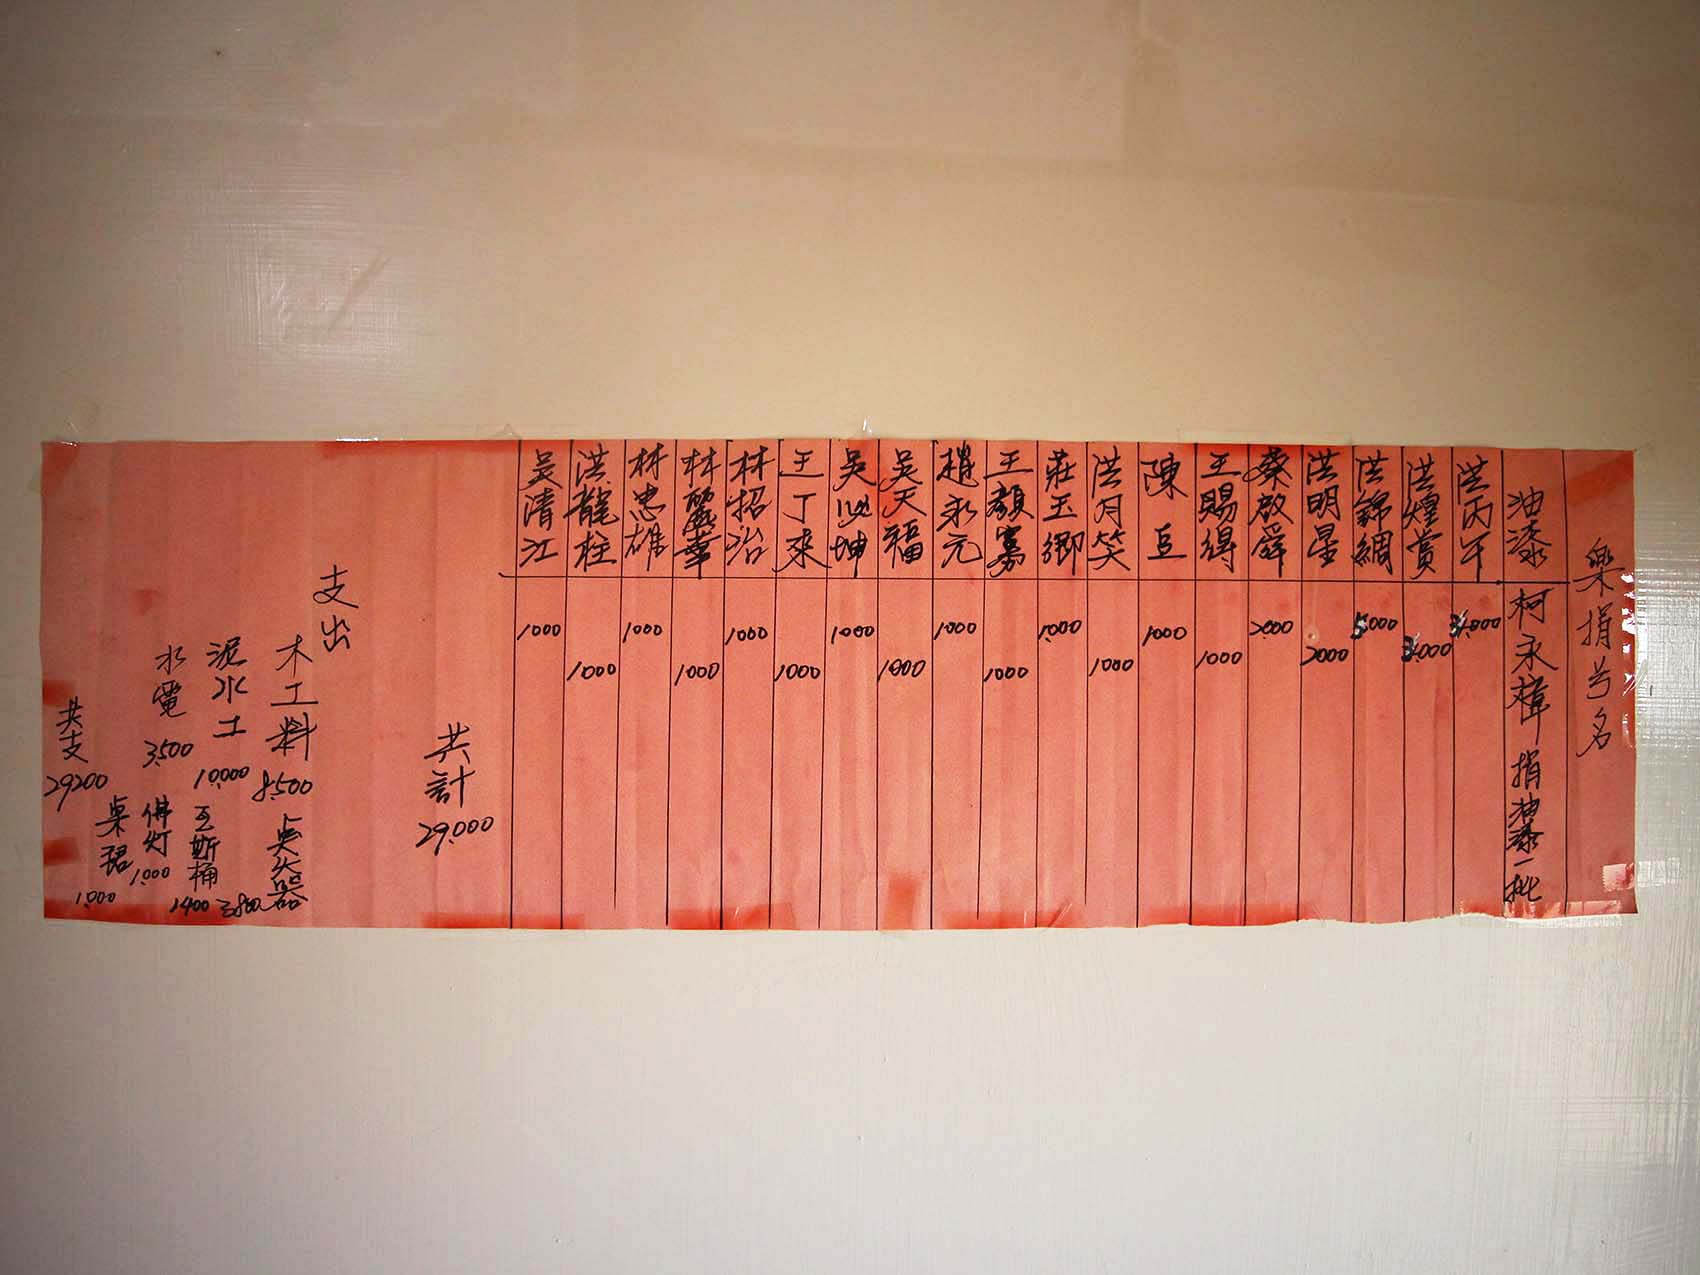 樂捐芳名
油漆 柯永 捐油漆一批
洪丙午 3.000
洪煌賞 3.000
洪錦綢 5.000
洪明星 2000
蔡啟舜 2.000
王賜得 1000
陳豆 1000
洪月笑 1000
莊玉鄉 1.000
王顏 1000
趙永元 1.000
吳天福 1000
吳坤 1000
王丁來 1000
林招治 1000
林麗華 1000
林忠雄 1000
洪龍柱 1000
吳清江 1000
共計 29.000
支出
木工料 8.500
点火器 3.800
泥水工 10.000
瓦斯桶 1400
水電 3.500
佛灯 1.000
桌裙 1.000
共支 29200